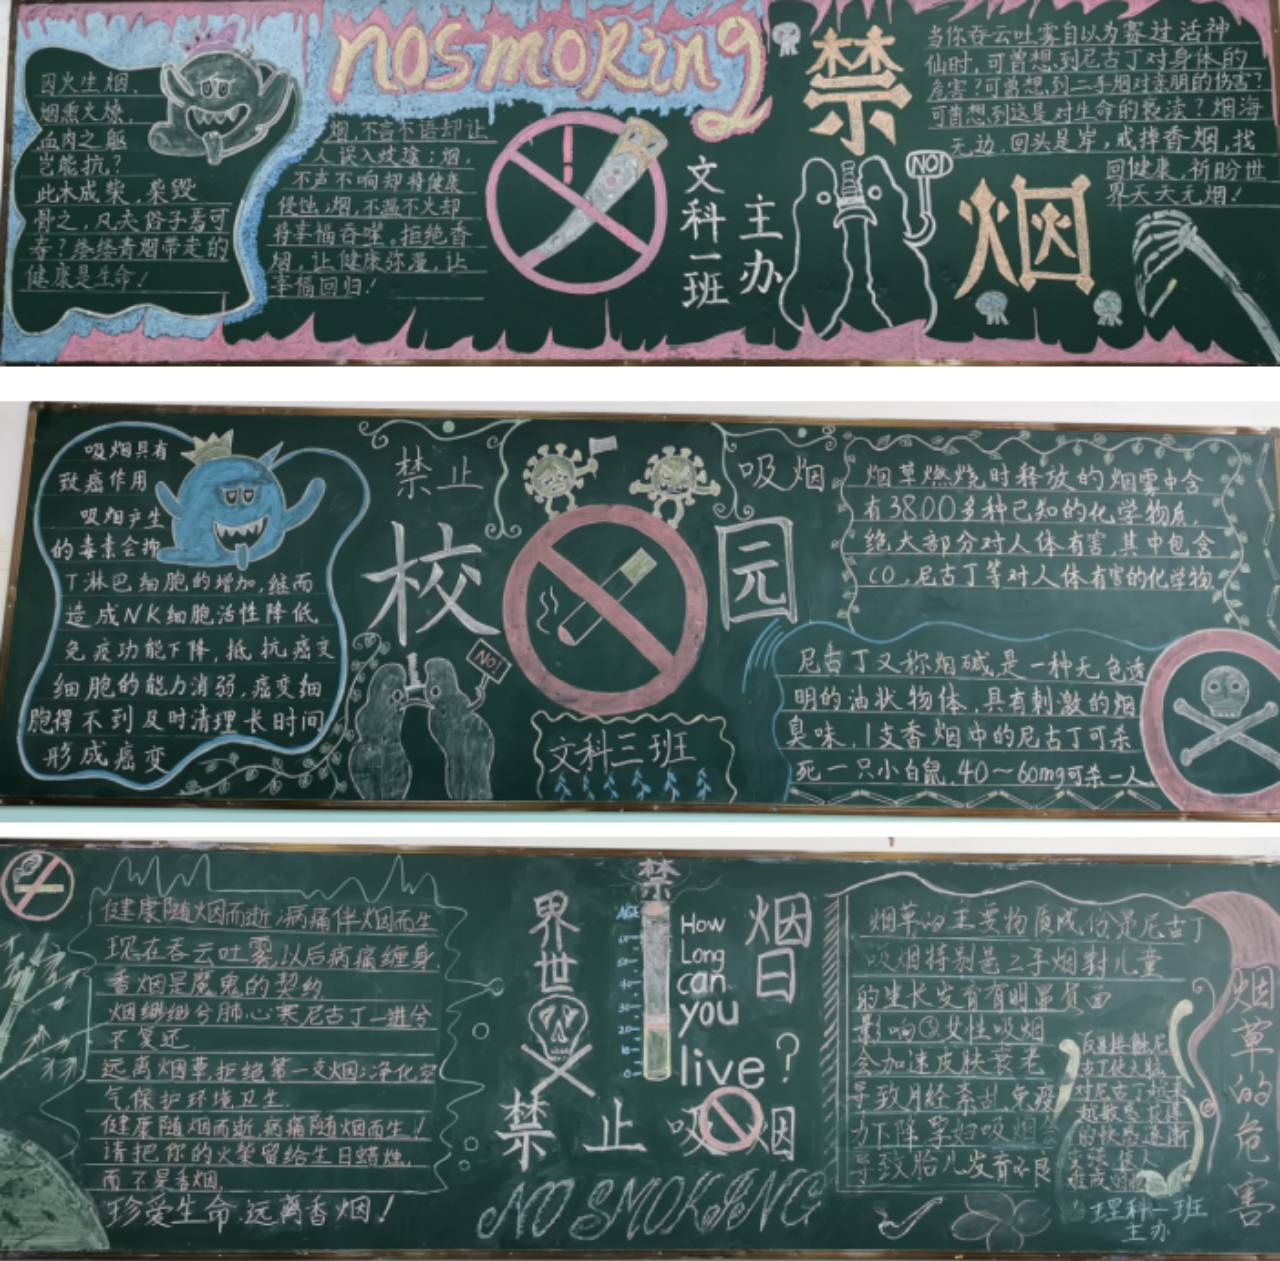 因火生烟，
烟熏火燎，
血肉之躯
岂能抗？
此木成柴，柴毁
骨之，凡夫俗子焉可
奈？袅袅青烟带走的
健康是生命！
nosmoking
烟，不言不语却让
人误入歧途；烟，
不声不响却将健康
侵蚀；烟，不温不火却
将幸福吞噬。拒绝香
烟，让健康弥漫，让
幸福回归！
文科一班
主办
禁
烟
NO!
当你吞云吐雾自以为赛过活神
仙时，可曾想到尼古丁对身体的
危害？可曾想到二手烟对亲朋的伤害？
可曾想到这是对生命的亵渎？烟海
无边，回头是岸，戒掉香烟，找
回健康，祈盼世
界天天无烟！
吸烟具有
致癌作用
吸烟产生
的毒素会抑
丁淋巴细胞的增加，继而
造成NK细胞活性降低，
免疫功能下降，抵抗癌变
细胞的能力消弱，癌变细
胞得不到及时清理长时间
形成癌变
禁止
吸烟
校
园
NO!
文科三班
烟草燃烧时释放的烟雾中含
有3800多种已知的化学物质，
绝大部分对人体有害，其中包含
CO，尼古丁等对人体有害的化学物
尼古丁又称烟碱，是一种无色透
明的油状物体，具有刺激的烟
臭味，1支香烟中的尼古丁可杀
死一只小白鼠，40～60mg可杀一人
健康随烟而逝；病痛伴烟而生
现在吞云吐雾，以后病痛缠身
香烟是魔鬼的契约
烟缈缈兮肺心寒尼古丁一进兮
不复还
远离烟草，拒绝第一支烟；净化空
气保护环境卫生
健康随烟而逝，病痛随烟而生！
请把你的火柴留给生日蜡烛，
而不是香烟，
珍爱生命 远离香烟！
界
世
禁
AGE
How
Long
can
you
live
?
烟
日
禁止吸烟
NO SMOKING
烟草的主要物质成份是尼古丁
吸烟特别是二手烟对儿童
的生长发育有明显负面
影响③女性吸烟
会加速皮肤衰老
导致月经紊乱，免疫
力下降孕妇吸烟会
导致胎儿发育不良
烟草的危害
理科一班
主办